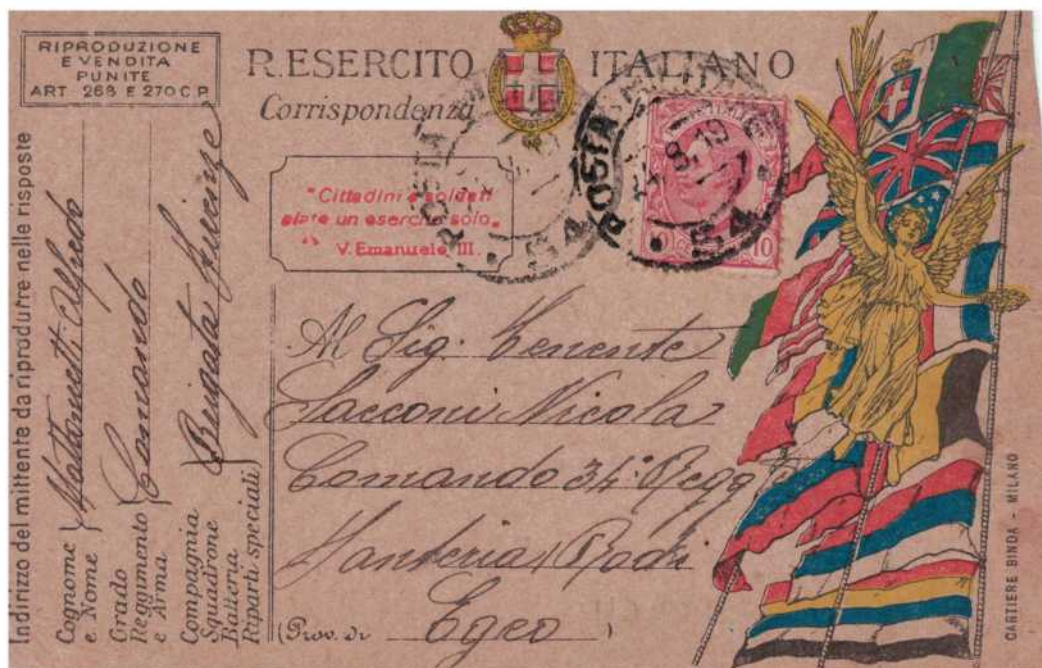 RIPRODUZIONE
E VENDITA
PUNITE
ART. 268 E 270 C.P.
R. ESERCITO ITALIANO
Corrispondenza
"Cittadini e soldati
siate un esercito solo„
V. Emanuele III.
POSTA
54
10
Al Sig. Tenente
Sacconi Nicola
Comando 34° Regg
Fanteria Rodi
(Prov. di Egeo)
Indirizzo del mittente da riprodurre nelle risposte
Cognome
e Nome
Alfredo
Grado
Reggimento
e Arma
Comando
Compagnia
Squadrone
Batteria
Riparti speciali
Brigata Firenze
CARTIERE BINDA - MILANO